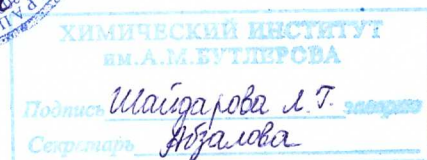 ХИМИЧЕСКИЙ ИНСТИТУТ
им.А.М.БУТЛЕРОВА
Подпись Шайдарова Л.Г. заверяю
Секретарь Абзалова